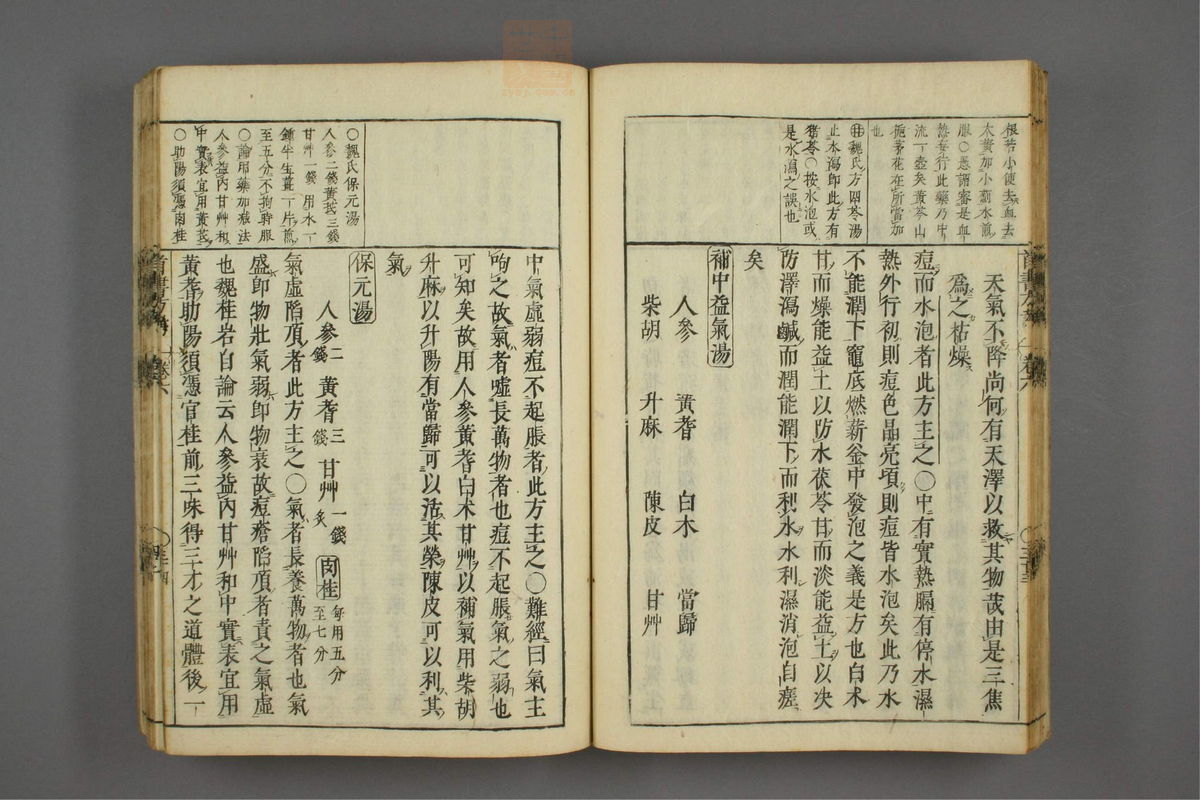 根苦小便去血去
大黄加小薊水煎
服〇愚謂審是血
熱妄行此藥乃中
流一壺矣黄芩山
梔茅花在所當加
也
魏氏方四苓湯
止水瀉即此方有
猪苓〇按水泡或
是水瀉之誤也
天氣不降尚何有天澤以救其物哉由是三焦
爲之枯燥
痘而水泡者此方主之〇中有實熱膈有停水濕
熱外行初則痘色晶亮頃則痘皆水泡矣此乃水
不能潤下竈底燃薪釜中發泡之義是方也白术
甘而燥能益土以防水茯苓甘而淡能益土以决
防澤瀉鹹而潤能潤下而利水水利濕消泡自瘥
矣
補中益氣湯
人參 黄耆 白术 當歸
柴胡 升麻 陳皮 甘艸
〇魏氏保元湯
人參二錢黄芪三錢
甘艸一錢 用水一
鍾半生薑一片煎
至五分不拘時服
〇論用藥加減法
人參益内甘艸和
中實表宜用黄芪
〇助陽須憑肉桂
中氣虚弱痘不起脹者此方主之〇難經曰氣主
呴之故氣者噓長萬物者也痘不起脹氣之弱也
可知矣故用人參黄耆白术甘艸以補氣用柴胡
升麻以升陽有當歸可以活其榮陳皮可以利其
氣
保元湯
人參二錢 黄耆三錢 甘艸一錢炙 肉桂每用五分至七分
氣虚陷頂者此方主之〇氣者長養萬物者也氣
盛即物壯氣弱即物衰故痘瘡陷頂者責之氣虚
也魏桂岩自論云人參益内甘艸和中實表宜用
黄耆助陽須憑官桂前三味得三才之道體後一